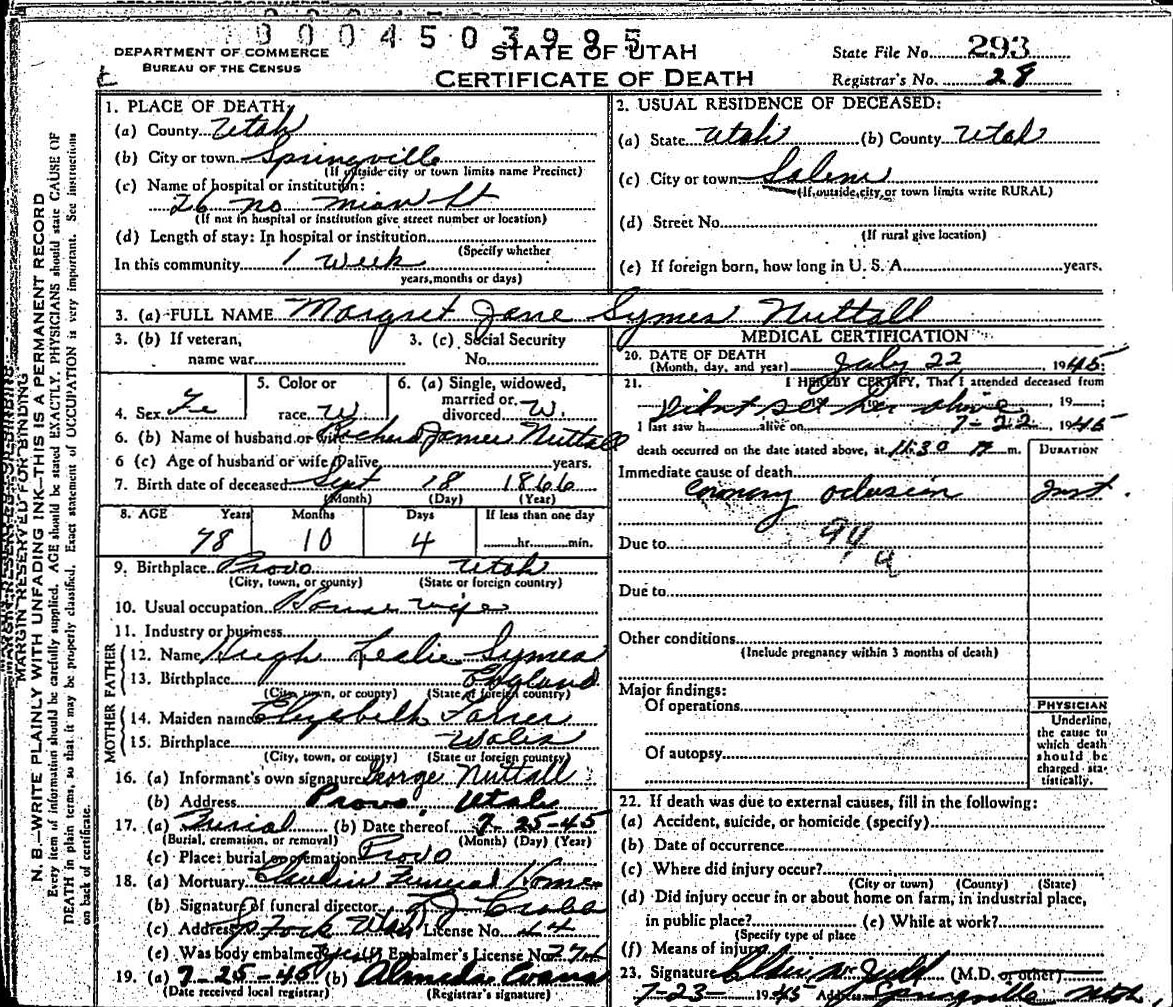 0004503995
DEPARTMENT OF COMMERCE
BUREAU OF THE CENSUS
STATE OF UTAH
CERTIFICATE OF DEATH
State File No. 293
Registrar's No. 28
MARGIN RESERVED FOR BINDING
N. B.—WRITE PLAINLY WITH UNFADING INK—THIS IS A PERMANENT RECORD
Every item of information should be carefully supplied. AGE should be stated EXACTLY. PHYSICIANS should state CAUSE OF
DEATH in plain terms, so that it may be properly classified. Exact statement of OCCUPATION is very important. See instructions
on back of certificate.
1. PLACE OF DEATH:
(a) County Utah
(b) City or town Springville
(If outside city or town limits name Precinct)
(c) Name of hospital or institution:
26 no mian St
(If not in hospital or institution give street number or location)
(d) Length of stay: In hospital or institution
(Specify whether
In this community 1 week
years, months or days)
2. USUAL RESIDENCE OF DECEASED:
(a) State Utah (b) County Utah
(c) City or town Salem
(If outside city or town limits write RURAL)
(d) Street No.
(If rural give location)
(e) If foreign born, how long in U. S. A. years.
3. (a) FULL NAME Margret Jane Symes Nuttall
3. (b) If veteran,
name war
3. (c) Social Security
No.
4. Sex Fe
5. Color or
race W
6. (a) Single, widowed,
married or
divorced W.
6. (b) Name of husband or wife Richard James Nuttall
6 (c) Age of husband or wife if alive years.
7. Birth date of deceased Sept 18 1866
(Month) (Day) (Year)
8. AGE Years Months Days If less than one day
78 10 4 hr. min.
9. Birthplace Provo Utah
(City, town, or county) (State or foreign country)
10. Usual occupation House wife
11. Industry or business
FATHER
12. Name Hugh Leslie Symes
13. Birthplace England
(City, town, or county) (State of foreign country)
MOTHER
14. Maiden name Elizabeth
15. Birthplace Wales
(City, town, or county) (State or foreign country)
16. (a) Informant's own signature George Nuttall
(b) Address Provo, Utah
17. (a) Burial (b) Date thereof 7-25-45
(Burial, cremation, or removal) (Month) (Day) (Year)
(c) Place: burial or cremation Provo
18. (a) Mortuary Claudin Funeral Home
(b) Signature of funeral director
(c) Address Sp Fork Utah License No. 44
(e) Was body embalmed Embalmer's License No.
19. (a) 7-25-45 (b) Almeda Evans
(Date received local registrar) (Registrar's signature)
MEDICAL CERTIFICATION
20. DATE OF DEATH
(Month, day, and year) July 22 1945
21. I HEREBY CERTIFY, That I attended deceased from
Didnt see her alive, 19
I last saw h alive on 7-22, 1945
death occurred on the date stated above, at 11:30 m.
DURATION
Immediate cause of death
Coronary oclusion Inst.
Due to 94
a
Due to
Other conditions
(Include pregnancy within 3 months of death)
Major findings:
Of operations
Of autopsy
PHYSICIAN
Underline
the cause to
which death
should be
charged sta-
tistically.
22. If death was due to external causes, fill in the following:
(a) Accident, suicide, or homicide (specify)
(b) Date of occurrence
(c) Where did injury occur?
(City or town) (County) (State)
(d) Did injury occur in or about home on farm, in industrial place,
in public place? (e) While at work?
(Specify type of place
(f) Means of injury
23. Signature (M.D. or other)
7-23- 1945 Address Springville Utah